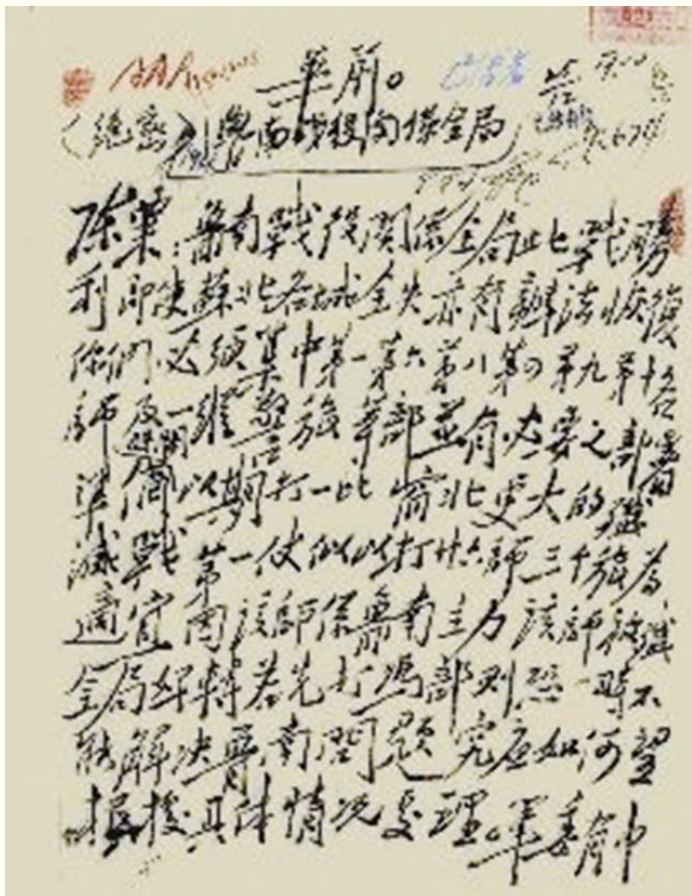 AAA
華前。
（绝密）魯南战役関係全局
陈粟：魯南戰役關係全局此戰勝
利即使蘇北各城全失亦有辦法恢復
你們必須集中第一第六第八第四第九第十各
師及一縱警旅等部並有必要之部署
準備以期打一比宿北更大的殲
滅戰第一仗似以打廿六師三个旅為
適宜因該部係魯南主力該師被殲
全局好轉若先打馮部则恐一時不
能解决魯南問題究应如何望
根據具体情况处理。軍委有申